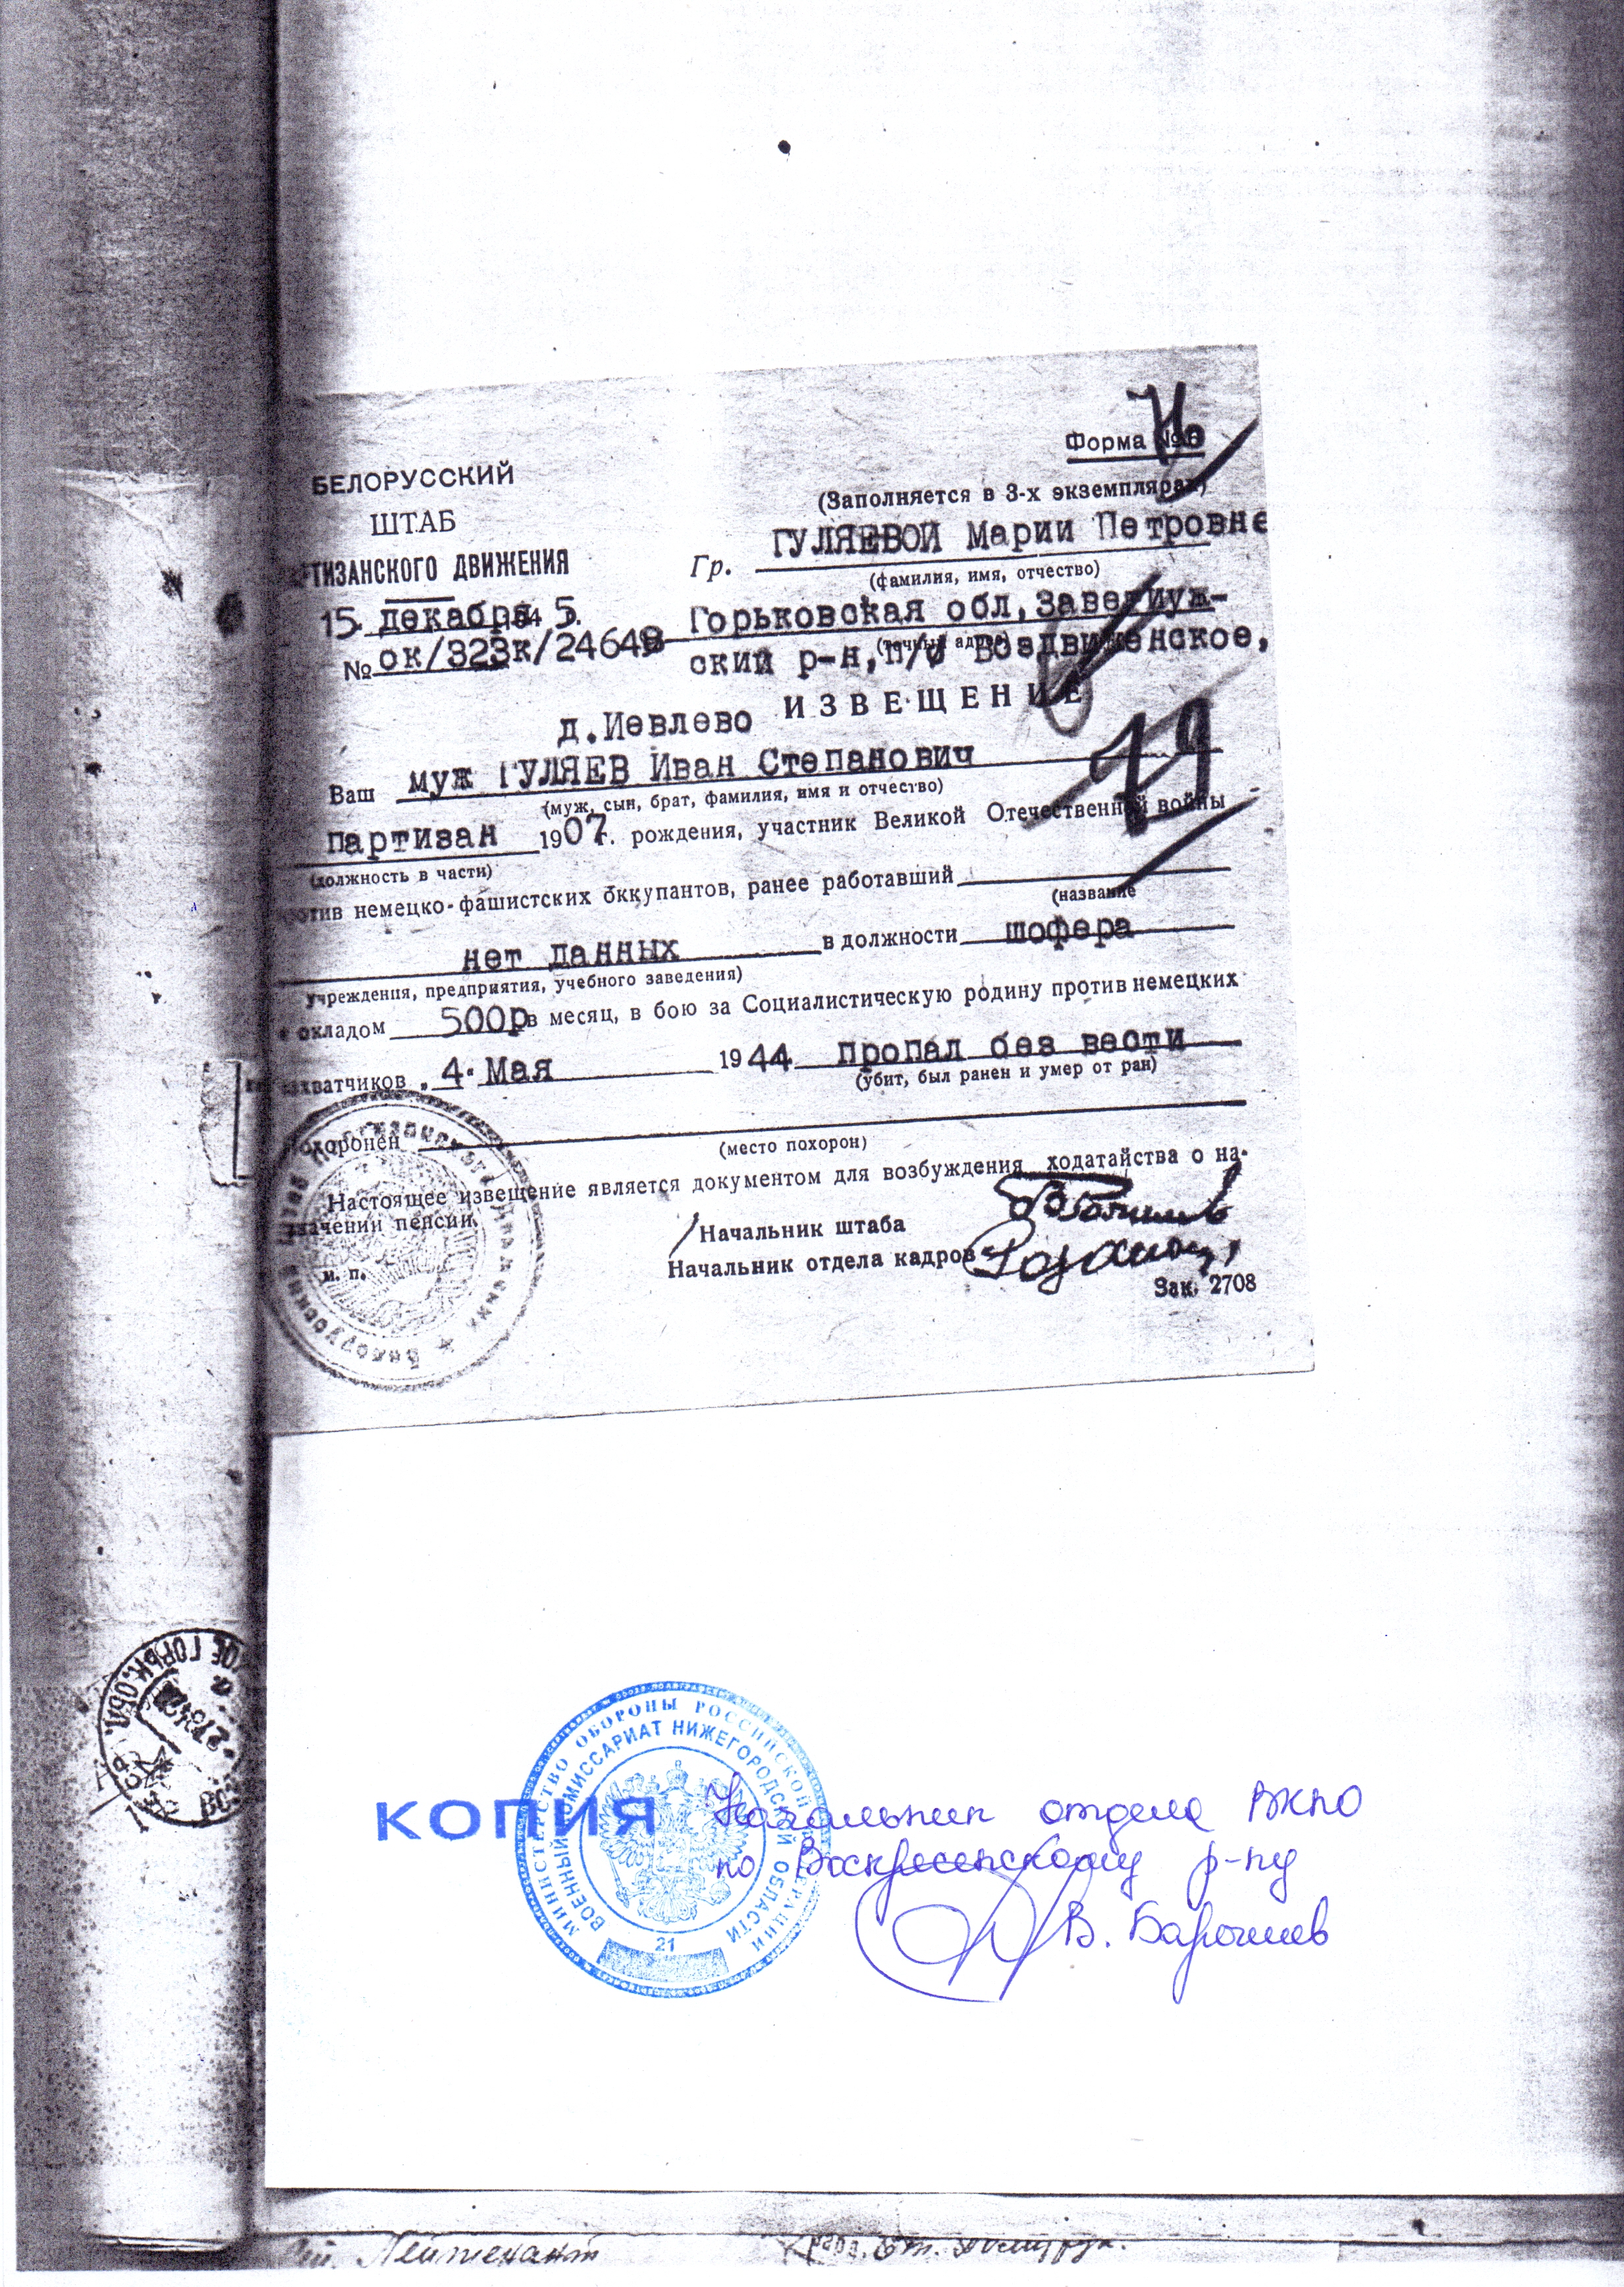 Форма №6
БЕЛОРУССКИЙ
ШТАБ
ТИЗАНСКОГО ДВИЖЕНИЯ
15 декабря 194 5.
№ ок/323к/24648
(Заполняется в 3-х экземплярах)
Гр. ГУЛЯЕВОЙ Марии Петровне
(фамилия, имя, отчество)
Горьковская обл, Заветлуж-
(точный адрес)
ский р-н, п/о Воздвиженское,
ИЗВЕЩЕНИЕ
д.Иевлево
Ваш муж ГУЛЯЕВ Иван Степанович
(муж, сын, брат, фамилия, имя и отчество)
19
партизан 1907г. рождения, участник Великой Отечественной войны
(должность в части)
отив немецко-фашистских оккупантов, ранее работавший
(название
нет данных в должности шофера
учреждения, предприятия, учебного заведения)
с окладом 500р в месяц, в бою за Социалистическую родину против немецких
захватчиков „ 4 " Мая 1944 пропал без вести
(убит, был ранен и умер от ран)
похоронен
(место похорон)
Настоящее извещение является документом для возбуждения ходатайства о на-
значении пенсии.
Начальник штаба
м. п.
Начальник отдела кадров
Зак. 2708
ГОРЬК. ОБЛ.
МИНИСТЕРСТВО ОБОРОНЫ РОССИЙСКОЙ ФЕДЕРАЦИИ
ВОЕННЫЙ КОМИССАРИАТ НИЖЕГОРОДСКОЙ ОБЛАСТИ
21
КОПИЯ
Начальник отдела ВКНО
по Воскресенскому р-ну
Лейтенант